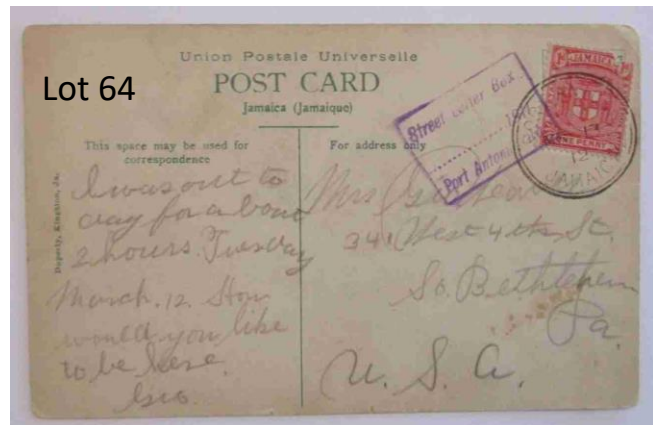 Lot 64
Union Postale Universelle
POST CARD
Jamaica (Jamaique)
This space may be used for
correspondence
For address only
Street Letter Box
Port Antonio
JAMAICA
ONE PENNY
JAMAICA
Duperly, Kingston, Ja.
I was out to
day for about
2 hours. Tuesday
March. 12. How
would you like
to be here.
Geo.
Mrs Geo
341 West 4th St.
So. Bethlehem
Pa.
U. S. A.